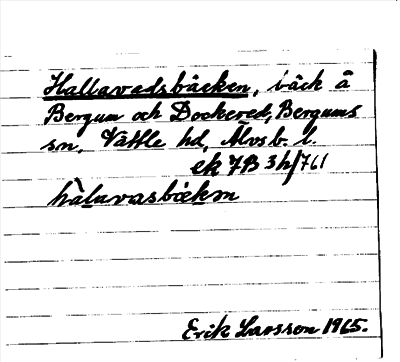 Hallavadsbäcken, bäck å
Bergum och Dockered, Bergums
sn, Vättle hd, Älvsb. l.
ek 7B 3h/761
hàluvasbækən
Erik Larsson 1965.